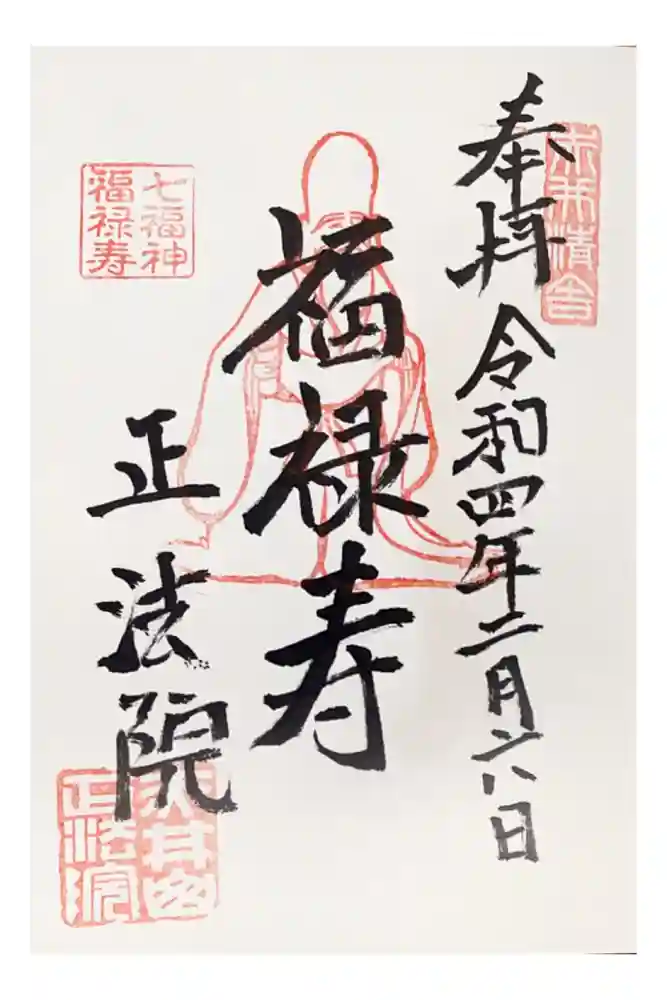 奉拝 令和四年二月六日
福禄寿
七福神
福禄寿
正法院
正法院